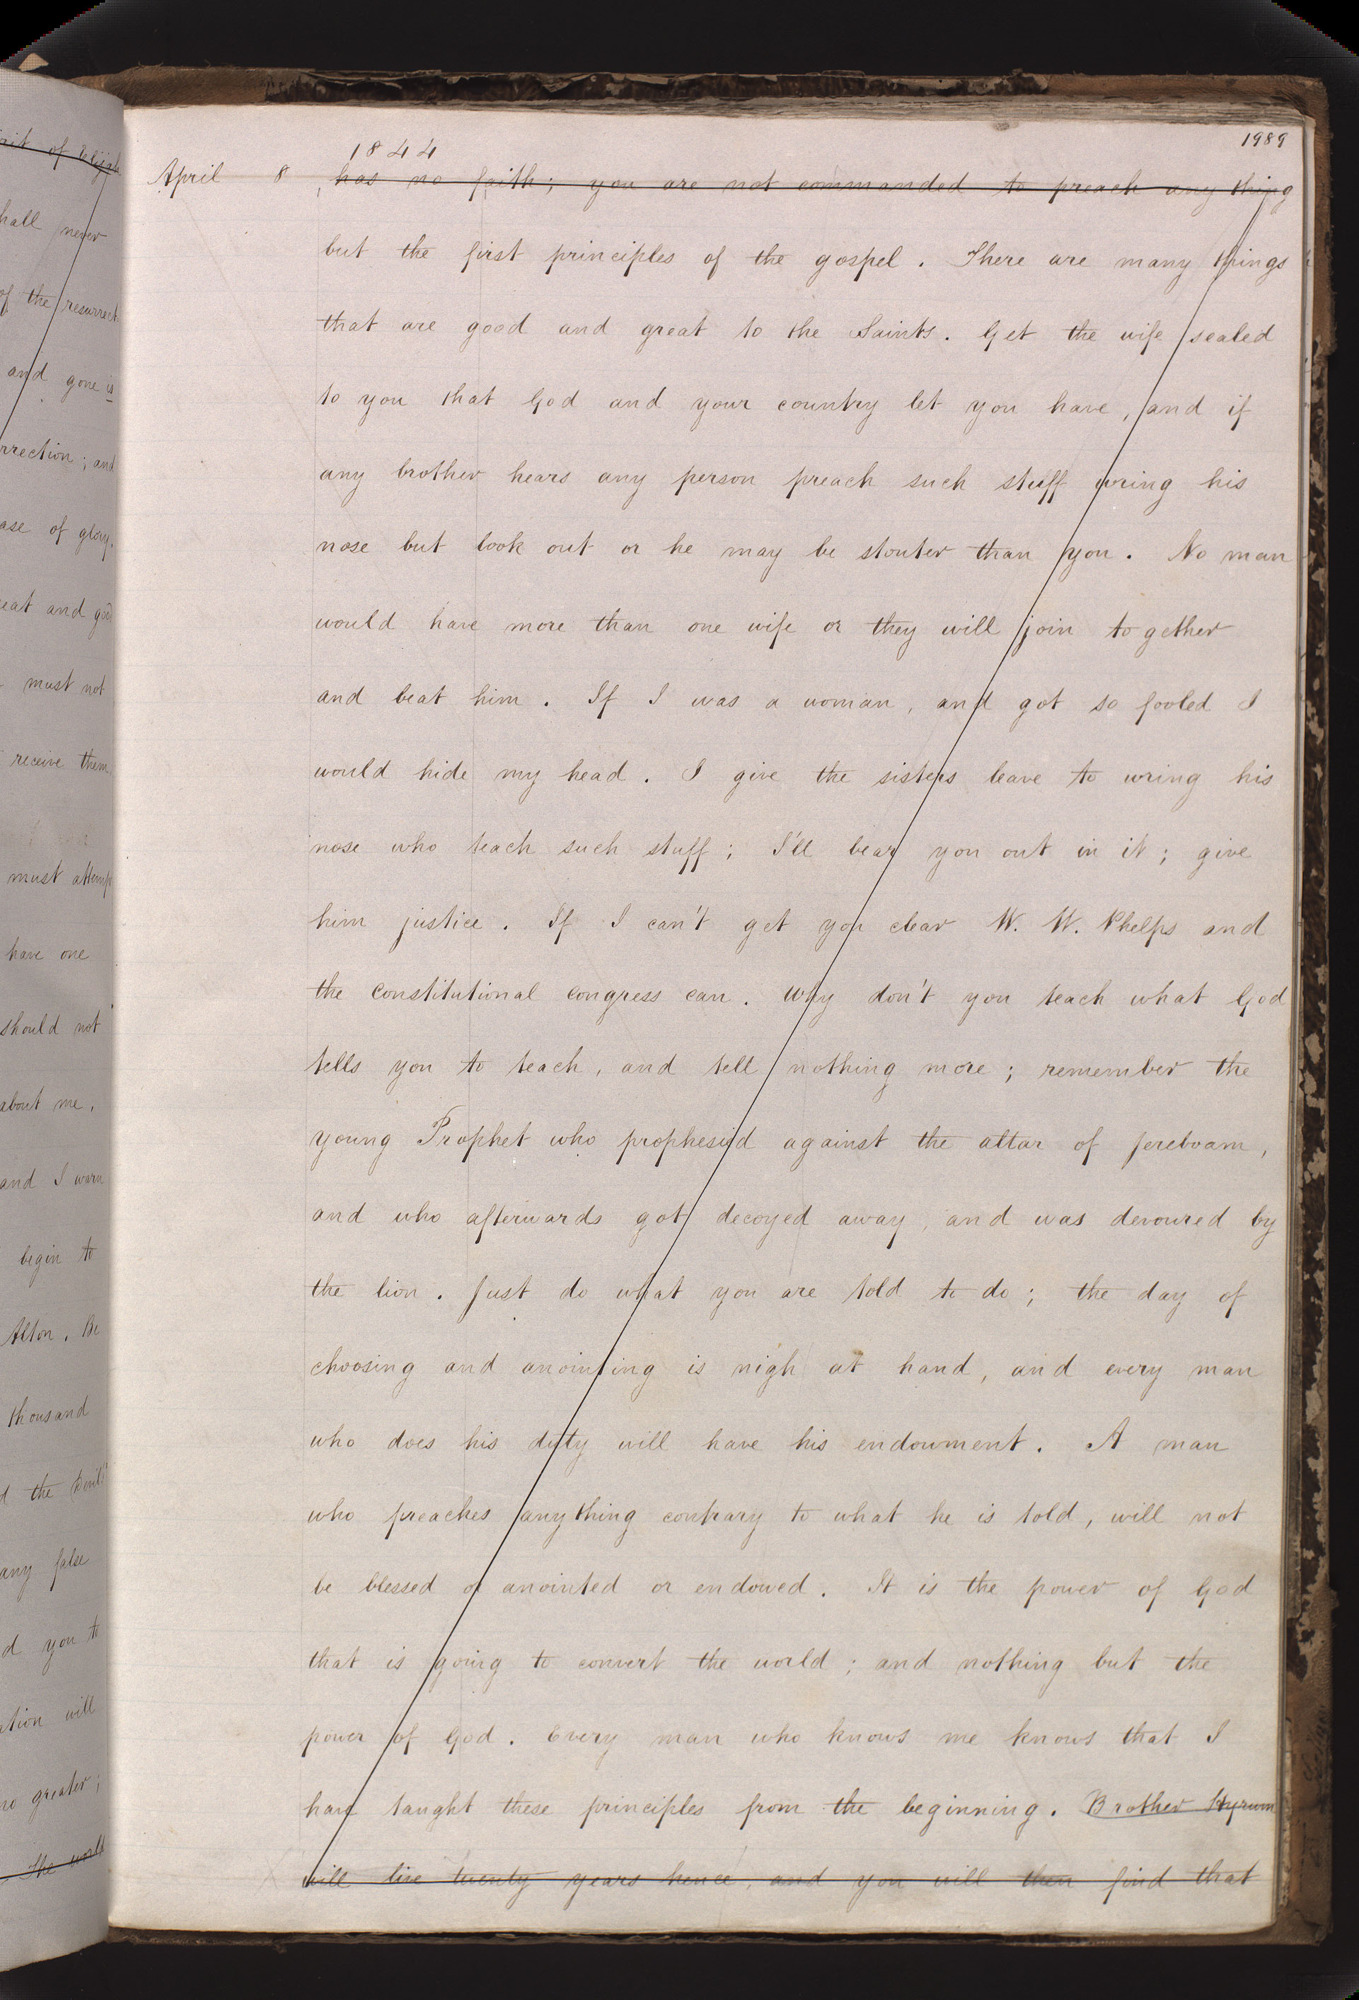 1989
1844
April 8 has no faith; you are not commanded to preach any thing
but the first principles of the gospel. There are many things
that are good and great to the Saints. Get the wife sealed
to you that God and your country let you have, and if
any brother hears any person preach such stuff wring his
nose but look out or he may be stouter than you. No man
would have more than one wife or they will join together
and beat him. If I was a woman, and got so fooled I
would hide my head. I give the sisters leave to wring his
nose who teach such stuff; I'll bear you out in it; give
him justice. If I can't get you clear W. W. Phelps and
the constitutional congress can. Why don't you teach what God
tells you to teach, and tell nothing more; remember the
young Prophet who prophesied against the altar of Jereboam,
and who afterwards got decoyed away, and was devoured by
the lion. Just do what you are told to do; the day of
choosing and anointing is nigh at hand, and every man
who does his duty will have his endowment. A man
who preaches anything contrary to what he is told, will not
be blessed or anointed or endowed. It is the power of God
that is going to convert the world; and nothing but the
power of God. Every man who knows me knows that I
have taught these principles from the beginning. Brother Hyrum
will live twenty years hence, and you will then find that
of Elijah
hall never
of the resurrect
and gone is
rrection; and
ase of glory.
eat and good
must not
receive them
must attempt
have one
should not
about me,
and I warn
begin to
Alton. Be
thousand
the Devil
any false
d you to
ation will
no greater;
The world